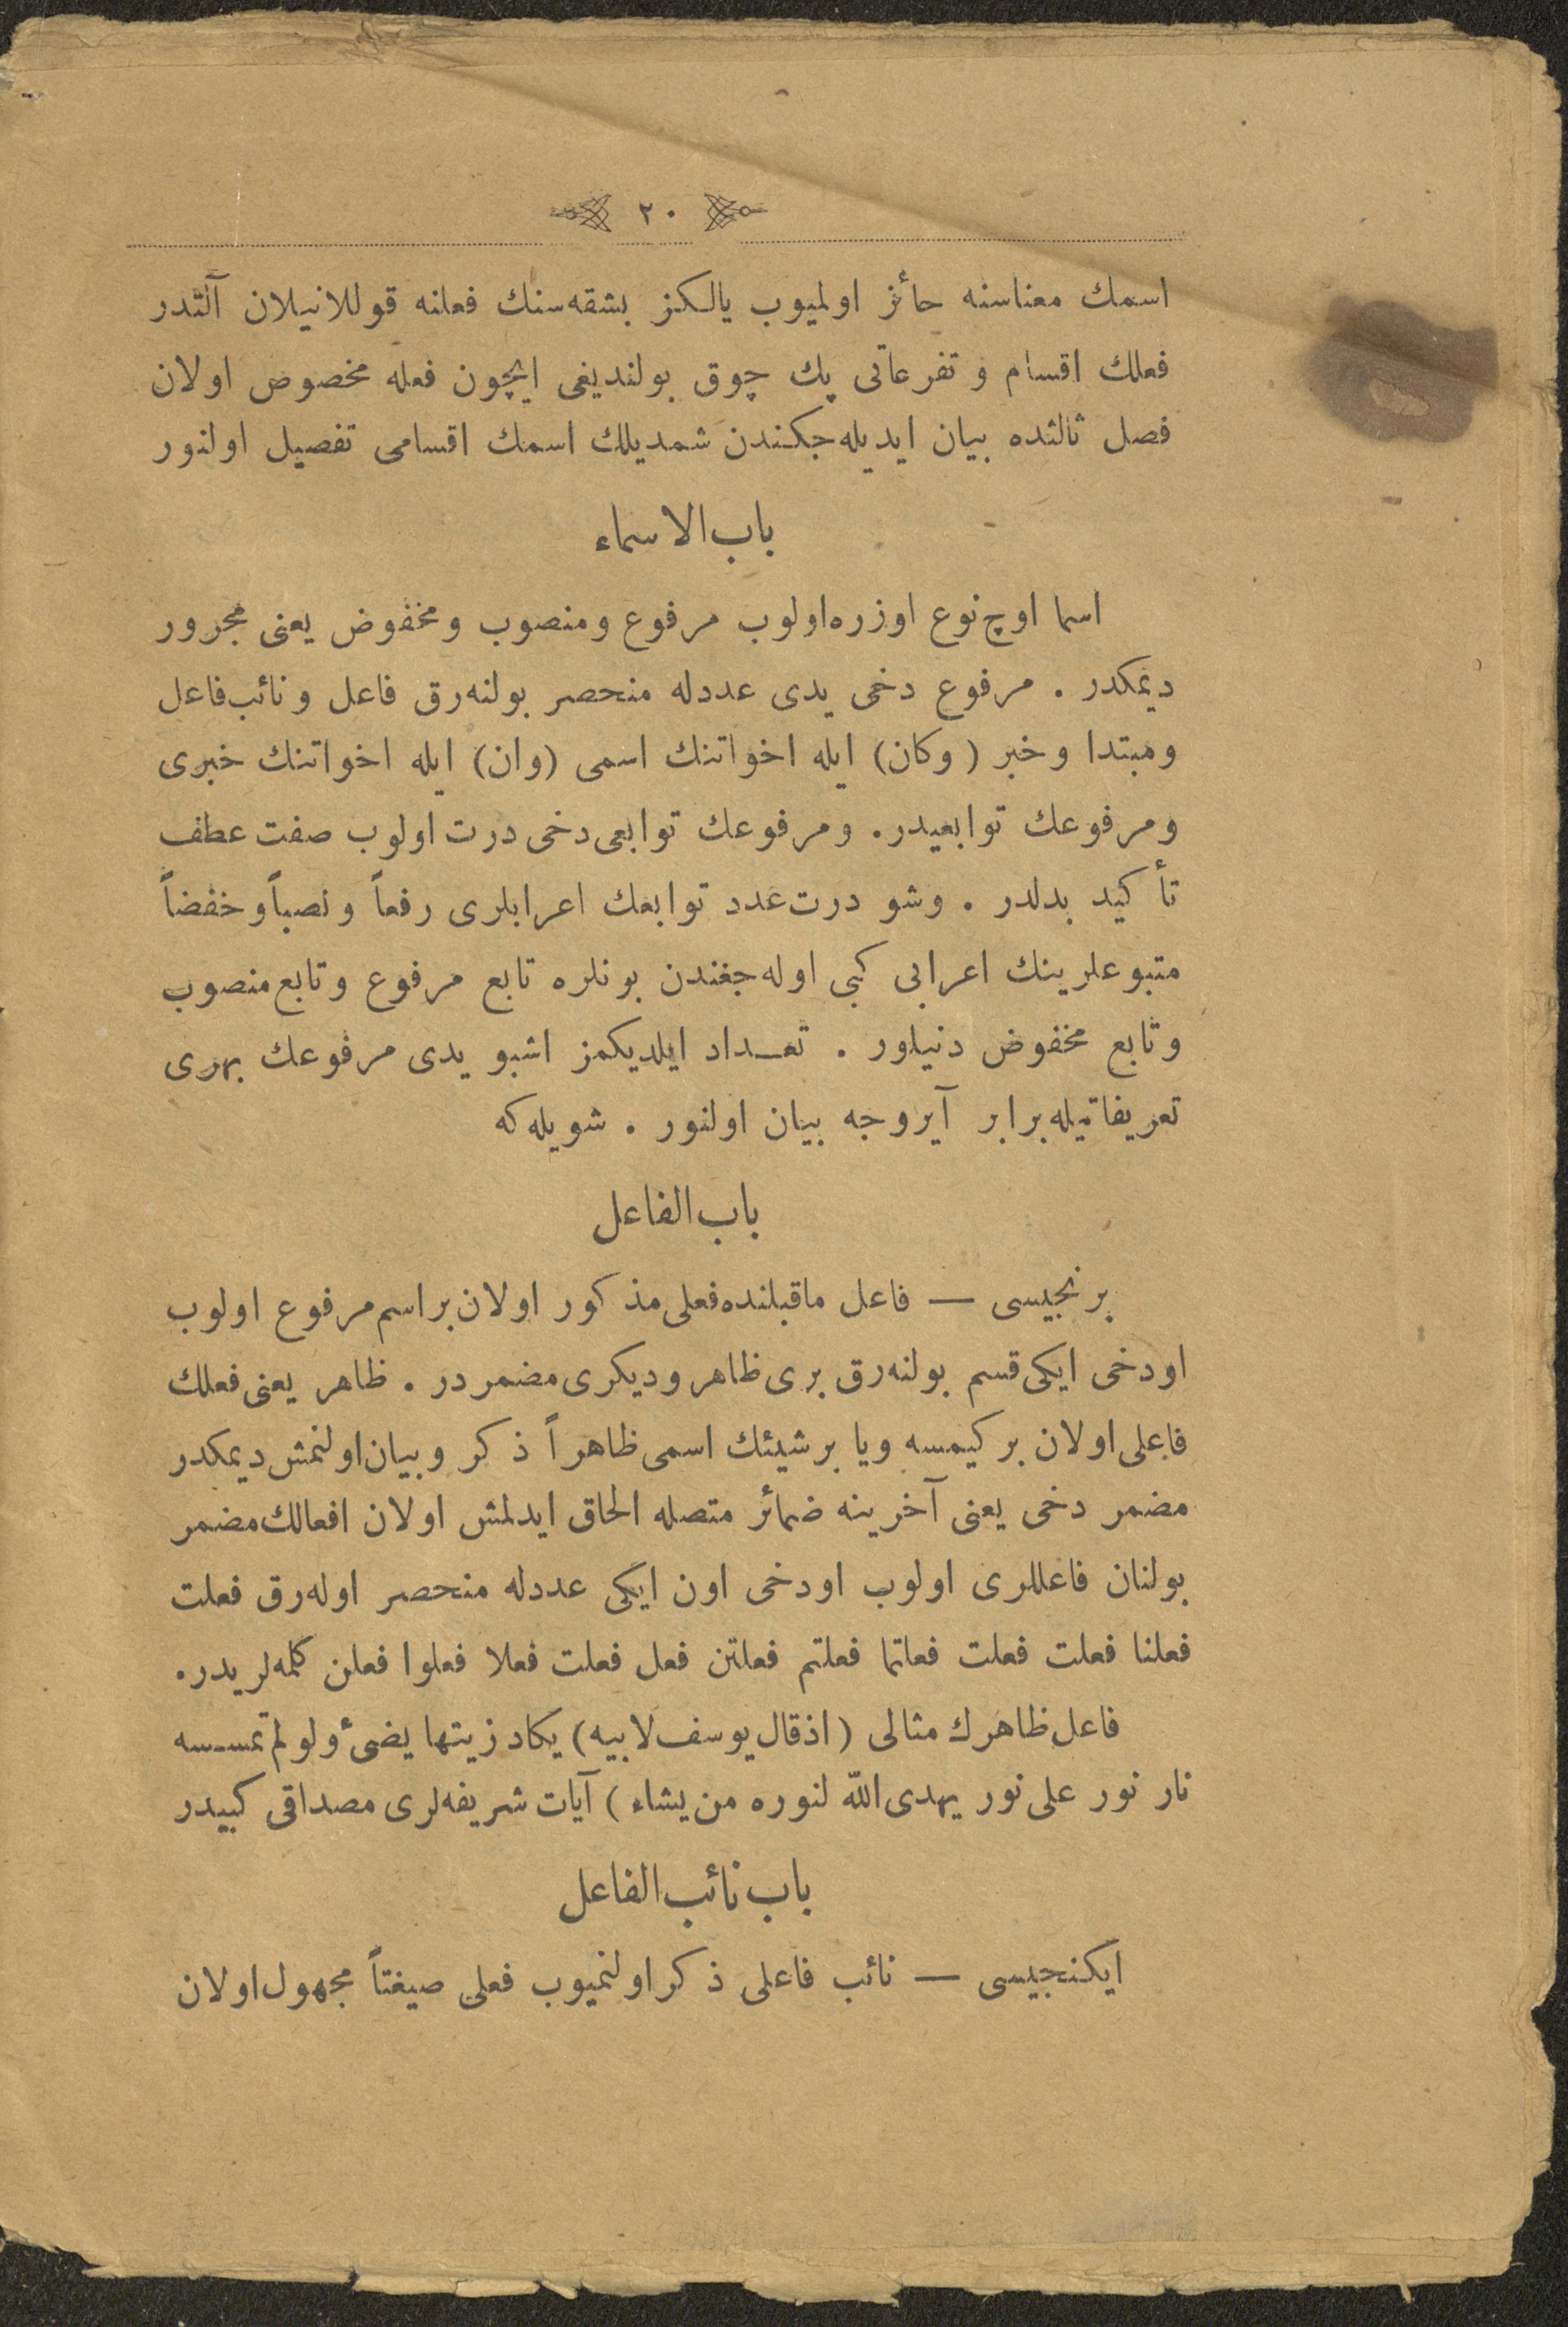 ٢٠
اسمك معناسنه حائز اولميوب يالكز بشقه‌سنك فعلنه قوللانيلان آلتدر
فعلك اقسام و تفرعاتى پك چوق بولنديغى ايچون فعله مخصوص اولان
فصل ثالثده بيان ايديله‌جكندن شمديلك اسمك اقسامى تفصيل اولنور
باب الاسماء
اسما اوچ نوع اوزره اولوب مرفوع ومنصوب ومخفوض يعنى مجرور
ديمكدر . مرفوع دخى يدى عددله منحصر بولنه‌رق فاعل ونائب فاعل
ومبتدا وخبر (وكان) ايله اخواتنك اسمى (وان) ايله اخواتنك خبرى
ومرفوعك توابعيدر . ومرفوعك توابعى دخى درت اولوب صفت عطف
تأكيد بدلدر . وشو درت عدد توابعك اعرابلرى رفعاً ونصباً وخفضاً
متبوعلرينك اعرابى كبى اوله‌جغندن بونلره تابع مرفوع وتابع منصوب
وتابع مخفوض دنيلور . تعداد ايلديكمز اشبو يدى مرفوعك بهرى
تعريفاتيله برابر آيروجه بيان اولنور . شويله كه
باب الفاعل
برنجيسى — فاعل ماقبلنده فعلى مذكور اولان بر اسم مرفوع اولوب
اودخى ايكى قسم بولنه‌رق برى ظاهر وديكرى مضمردر . ظاهر يعنى فعلك
فاعلى اولان بر كيمسه ويا بر شيئك اسمى ظاهراً ذكر وبيان اولنمش ديمكدر
مضمر دخى يعنى آخرينه ضمائر متصله الحاق ايدلمش اولان افعالك مضمر
بولنان فاعللرى اولوب اودخى اون ايكى عددله منحصر اوله‌رق فعلت
فعلنا فعلت فعلت فعلتما فعلتم فعلتن فعل فعلت فعلا فعلوا فعلن كلمه‌لريدر .
فاعل ظاهرك مثالى (اذقال يوسف لابيه) يكاد زيتها يضئ ولولم تمسسه
نار نور على نور يهدى الله لنوره من يشاء) آيات شريفه‌لرى مصداقى كبيدر
باب نائب الفاعل
ايكنجيسى — نائب فاعلى ذكر اولنميوب فعلى صيغتاً مجهول اولان